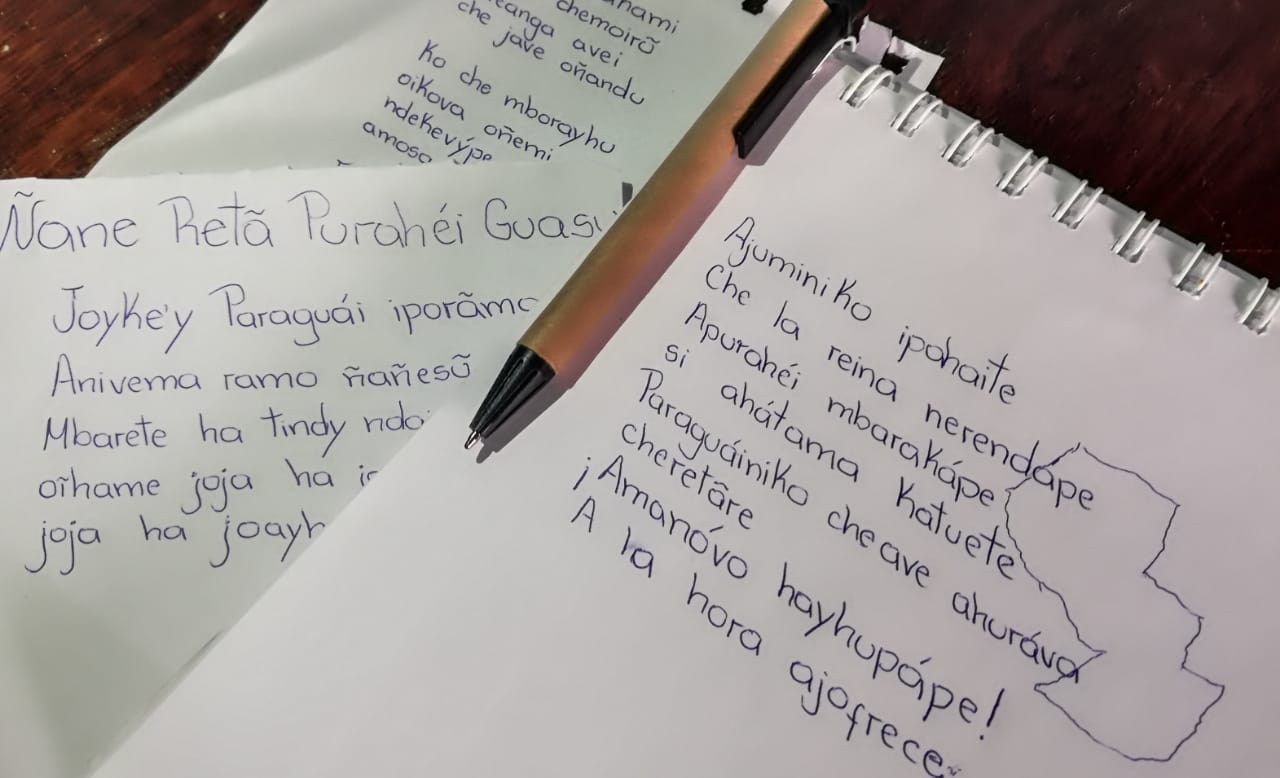 chemoirũ
avei
che jave oñandu
Ko che mborayhu
oikova oñemi
ndekevýpe
amoso
Ñane Retã Purahéi Guasu!
Joyke'y Paraguái iporãmo
Anivema ramo ñañesũ
Mbarete ha tindy
oĩhame joja ha
joja ha joayh
Ajuminiko ipohaite
Che la reina nerendápe
Apurahéi mbarakápe
si ahátama katuete
Paraguáiniko che ave ahuráva
cheretãre
¡Amanóvo hayhupápe!
A la hora ajofrece